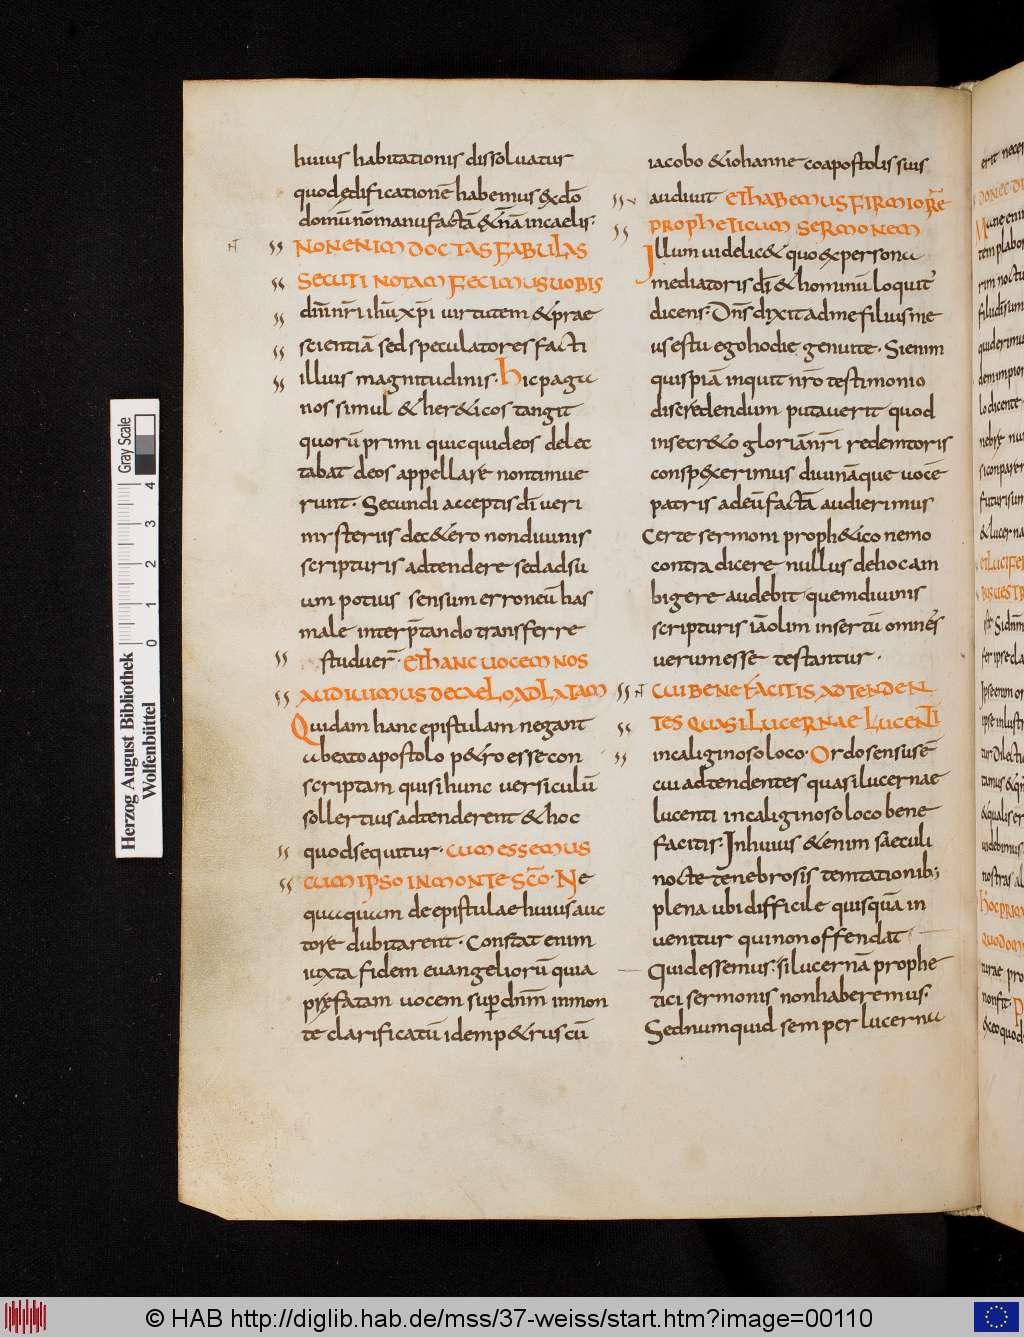 huius habitationis dissoluatur
quod ędificationē habemus ex do̅
domū nō manu factā & ̅nā in caelis·
NON ENIM DOCTAS FABULAS
SECUTI NOTAM FECIMUS UOBIS
dn̅i nr̅i ihū xp̅i uirtutem & prae
scientiā sed speculatores facti
illius magnitudinis· hic paga
nos simul & her&icos tangit
quorū primi quicquid eos delec
tabat deos appellare non timue
runt· Secundi acceptis dī ueri
mysteriis dec&ero non diuinis
scripturis adtendere sed ad su
um potius sensum erroneū has
male interp̅tando transferre
studuer̅· ET HANC UOCEM NOS
AUDIUIMUS DE CAELO ADLATAM
Quidam hanc epistulam negant
a beato apostolo p&ro esse con
scriptam qui si hunc uersiculū
sollertius adtenderent & hoc
quod sequitur· CUM ESSEMUS
CUM IPSO IN MONTE SC̅O· Ne
quaquam de epistulae huius auc
tore dubitarent· Constat enim
iuxta fidem euangeliorū quia
pręfatam uocem sup dn̅m in mon
te clarificatū idem p&rus cū
iacobo & iohanne coapostolis suis
audiuit ET HABEMUS FIRMIORE̅
PROPHETICUM SERMONEM
Illum uidelic& quo ex persona
mediatoris dī & hominū loquit᾽
dicens· Dn̅s dixit ad me filius me
us es tu ego hodie genui te· Si enim
quispiā inquit nr̅o testimonio
discredendum putauerit quod
in secr&o gloriā nr̅i redemtoris
conspexerimus diuināque uocē
patris ad eū factā audierimus
Certe sermoni proph&ico nemo
contradicere nullus de hoc am
bigere audebit quem diuinis
scripturis iā olim insertū omnes
uerum esse testantur·
CUI BENE FACITIS ADTENDEN
TES QUASI LUCERNAE LUCENTI
in caliginoso loco· Ordo sensus ē
cui adtendentes quasi lucernae
lucenti in caliginoso loco bene
facitis· In huius &enim saeculi
nocte tenebrosis temtationib;
plena ubi difficile quisquā in
uenitur qui non offendat
Quid essemus· si lucernā prophe
tici sermonis non haberemus·
Sed numquid semper lucerna
Herzog August Bibliothek
Wolfenbüttel
0 1 2 3 4
Gray Scale
© HAB http://diglib.hab.de/mss/37-weiss/start.htm?image=00110